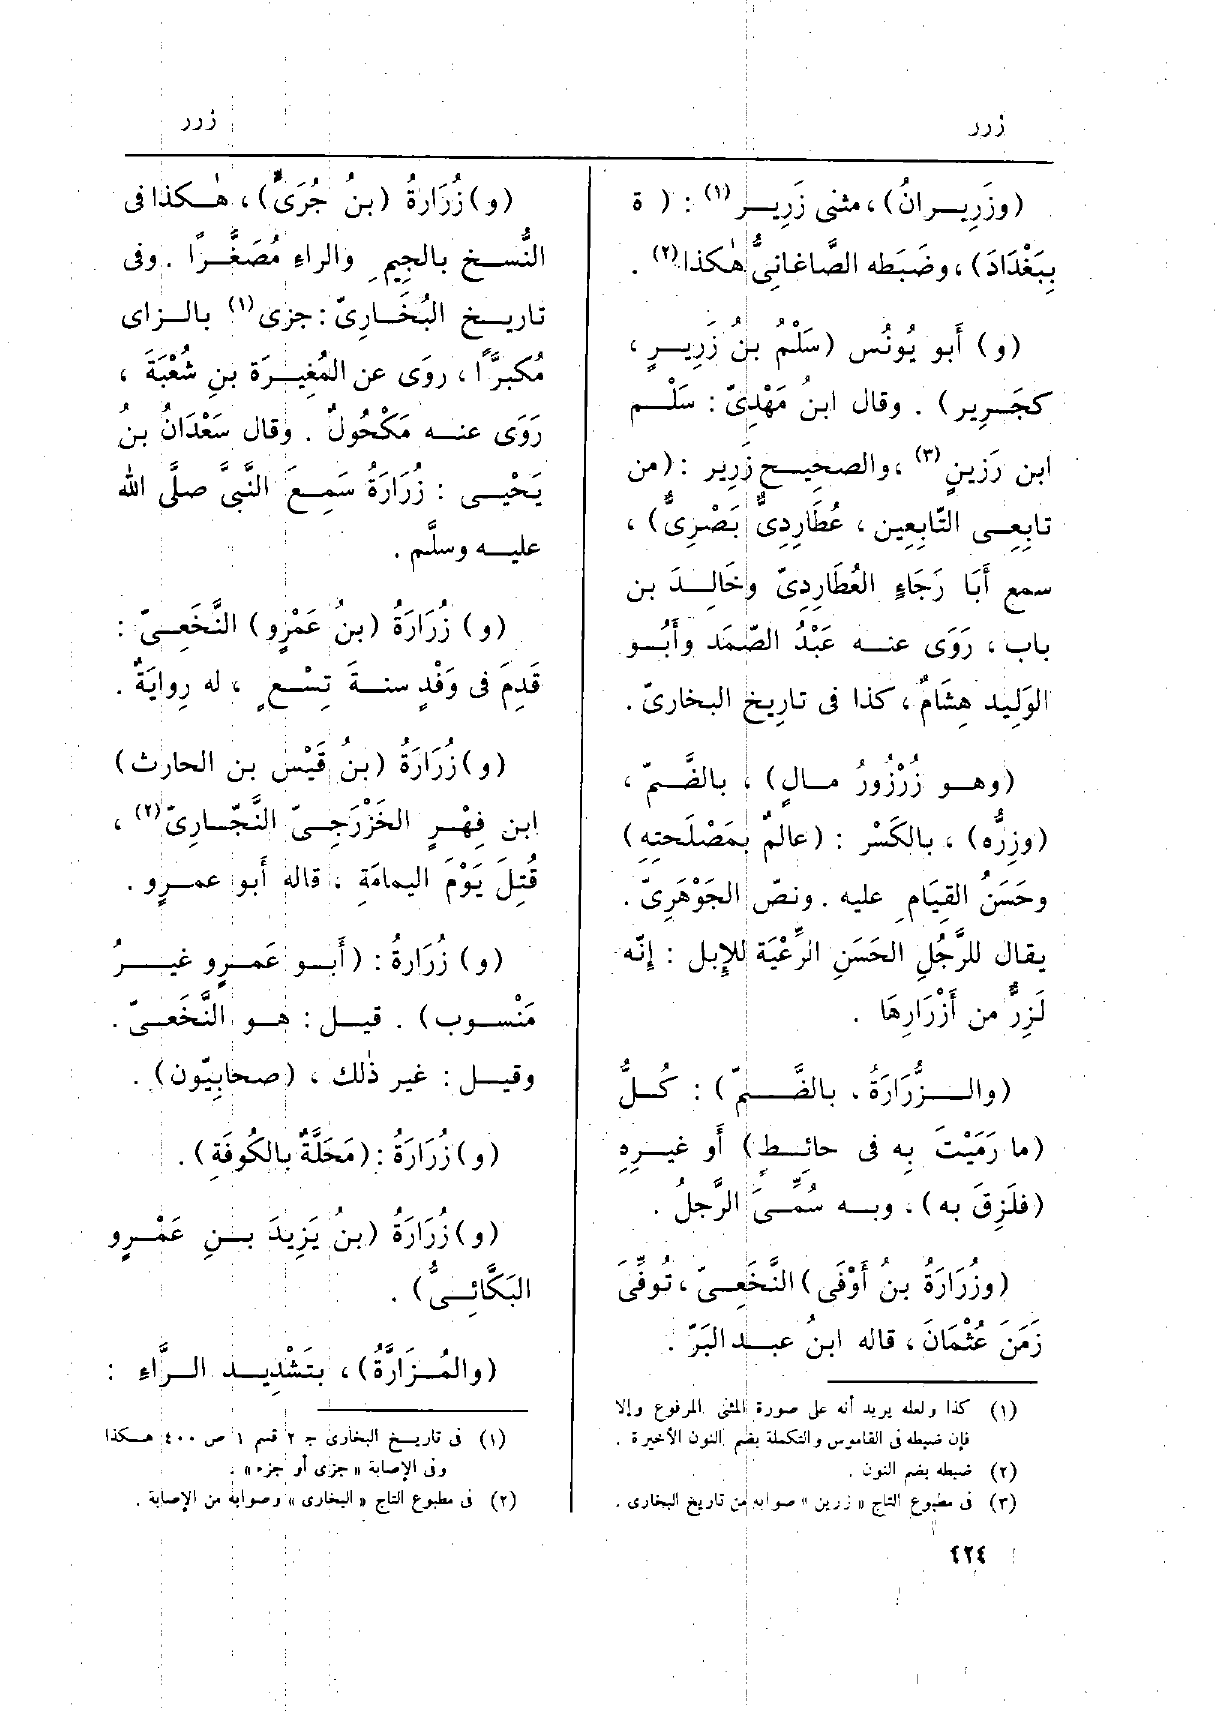 زرر
زرر
(وزَرِيرانُ)، مثنى زَرِير(١) : (ة
بِبَغْدَادَ)، وضَبَطه الصَّاغانىُّ هٰكذا(٢) .
(و) أَبو يُونُس (سَلْمُ بنُ زَرِيرٍ،
كجَرِير) . وقال ابنُ مَهْدِىّ : سَلْم
ابن رَزينٍ(٣) ، والصحِيح زَرِير : (من
تابِعِى التّابِعِين، عُطَارِدِىٌّ بَصْرِىٌّ)،
سمع أَبَا رَجَاءٍ العُطَارِدِىّ وخَالِدَ بن
باب، رَوَى عنه عَبْدُ الصَّمَد وأَبُو
الوَلِيد هِشَامٌ، كذا فى تارِيخ البخارىّ .
(وهو زُرْزُورُ مالٍ)، بالضَّمّ،
(وزِرُّه)، بالكَسْر : (عالمٌ بمَصْلَحتِهِ)
وحَسَنُ القِيَامِ عليه . ونصّ الجَوْهَرِىّ .
يقال للرَّجُلِ الحَسَنِ الرِّعْيَة للإِبل : إِنّه
لَزِرٌّ من أَزْرَارِهَا .
(والزُّرَارَةُ، بالضَّمّ) : كُلُّ
(ما رَمَيْتَ بِه فى حائِطٍ) أَو غيرِهِ
(فلَزِقَ به)، وبه سُمِّىَ الرَّجلُ .
(وزُرَارَةُ بنُ أَوْفَى) النَّخَعِىّ، تُوفِّىَ
زَمَنَ عُثْمَانَ، قاله ابنُ عبد البَرّ .
(١) كذا ولعله يريد أنه على صورة المثنى المرفوع وإلا
فإن ضبطه فى القاموس والتكملة بضم النون الأخيرة .
(٢) ضبطه بضم النون .
(٣) فى مطبوع التاج « زرين » صوابه من تاريخ البخارى .
٤٢٤
(و) زُرَارَةُ (بنُ جُرَىٍّ)، هٰكذا فى
النُّسخ بالجِيم والراءِ مُصَغَّرًا . وفى
تاريخ البُخَارِىّ : جزى(١) بالزاى
مُكبرًّا، روَى عن المُغِيرَة بنِ شُعْبَةَ،
رَوَى عنه مَكْحُولٌ . وقال سَعْدَانُ بنُ
يَحْيى : زُرَارَةُ سَمِعَ النَّبىَّ صلَّى الله
عليه وسلَّم .
(و) زُرَارَةُ (بنُ عَمْرٍو) النَّخَعِىّ :
قَدِمَ فى وَفْدٍ سنةَ تِسْعٍ، له رِوايَةٌ .
(و) زُرَارَةُ (بنُ قَيْس بن الحارث)
ابن فِهْرٍ الخَزْرَجِىّ النَّجّارِىّ(٢)،
قُتِلَ يَوْمَ اليمامَةِ، قالهُ أَبو عمرٍو .
(و) زُرَارةُ : (أَبو عَمرٍو غيرُ
مَنْسوب) . قيل : هو النَّخَعىّ .
وقيل : غير ذٰلك، (صحابِيّون) .
(و) زُرَارَةُ : (مَحَلَّةٌ بالكُوفَةِ) .
(و) زُرَارَةُ (بنُ يَزِيدَ بنِ عَمْرٍو
البَكَّائىُّ) .
(والمُزَارَّةُ)، بتَشْدِيد الرَّاءِ :
(١) فى تاريخ البخارى ج ٢ قسم ١ ص ٤٠٠ هكذا
وفى الإصابة « جزى أو جزء » .
(٢) فى مطبوع التاج « البخارى » وصوابه من الإصابة .